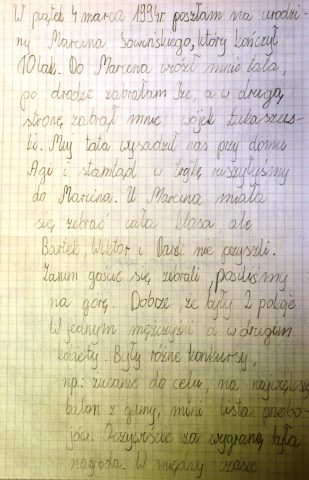 W piątek 4 marca 1994r poszłam na urodzi-
ny Marcina Sowińskiego, który kończył
10 lat. Do Marcina wiózł mnie tata,
po drodze zabrałam Izę, a w drugą
stronę zabrał mnie wójek Łukaszus-
ki. Mój tata wysadził nas przy domu
Agi i stamtąd w trójkę ruszyłyśmy
do Marcina. U Marcina miała
się zebrać cała klasa, ale
Bartek, Wiktor i Darek nie przyszli.
Zanim goście się zebrali, poszliśmy
na górę. Dobrze, że były 2 pokoje
W jednym mężczyźni a w drugim
kobiety. Były różne konkursy,
np.: rzucanie do celu, na największy
balon z gumy, mini lista przebo-
jów. Oczywiście za wygraną była
nagroda. W między czasie